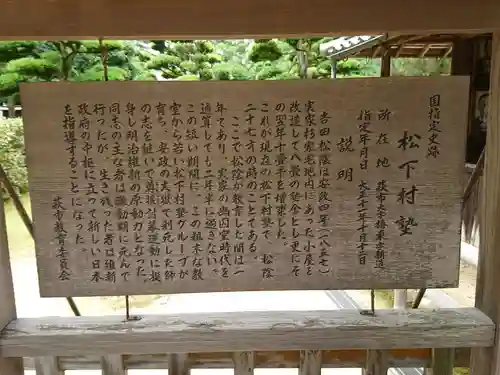 国指定史跡
松下村塾
所在地 萩市大字椿東字新道
指定年月日 大正十一年十月十二日
説明
吉田松陰は安政四年(一八五七)
実家杉家宅地内にあった小屋を
改造して八畳の塾舎とし更にそ
の翌年十畳半を増築した。
これが現在の松下村塾で、松陰
二十七才の時のことである。
ここで、松陰が教育した間は一
年であり、実家の幽囚室時代を
通算しても二年半に過ぎない。
この短い期間に、この粗末な教
室から若い松下村塾グループが
育ち、安政の大獄で刑死した師
の志を継いで尊攘討幕運動に挺
身し明治維新の原動力となった。
同志の主な者は激動期に死んで
行ったが、生き残った者は維新
政府の中枢に立って新しい日本
を指導することになった。
萩市教育委員会